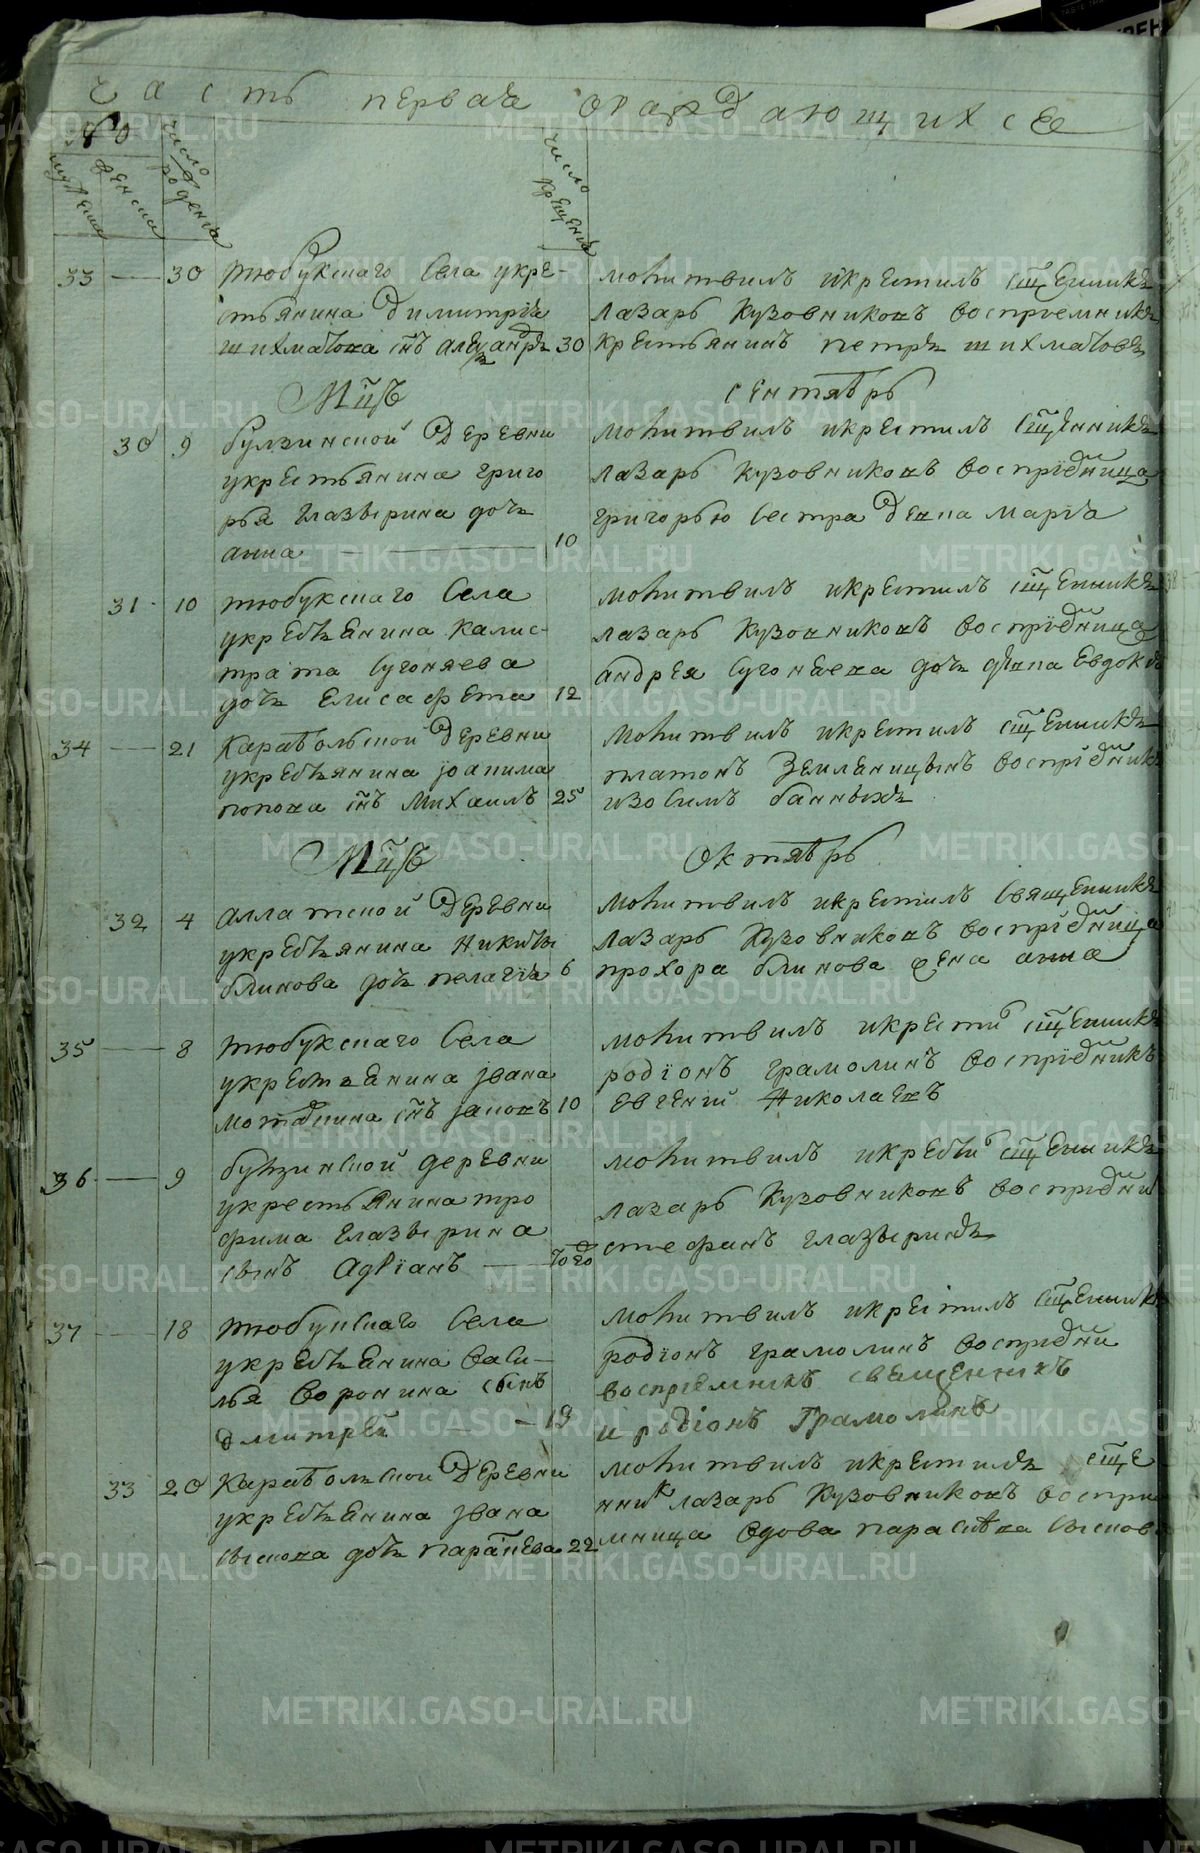 часть первая ораждающихсѧ
№
мужеска
женска
число рожденїа
число крещенїа
33 — 30 тюбукскаго села укре-
стьянина Димитрїя
шихматова снъ алеѯандръ 30
молитвилъ икрестилъ сщенникъ
лазарь кузовниковъ восприемникъ
крестьянинъ петръ шихматовъ
Мцъ сентябрь
30 9 булзинской деревни
укрестьянина григо
рья глазырина дочь
анна 10
молитвилъ икрестилъ сщенникъ
лазарь кузовниковъ воспрїемница
григорью сестра девка марїа
31 10 тюбукскаго села
укрестьянина калис-
трата сугоняева
дочь елисафета 12
молитвилъ икрестилъ сщенникъ
лазарь кузовниковъ воспрїемница
андрея сугоняева дочь девка Евдокїя
34 — 21 карабольской деревни
укрестьянина јоакима
попова снъ михаилъ 25
молитвилъ икрестилъ сщенникъ
платонъ земляницынъ воспрїемникъ
изосимъ банныхъ
Мцъ октябрь
32 4 аллатской деревни
укрестьянина никиты
блинова дочь пелагїя 6
молитвилъ икрестилъ священникъ
лазарь кузовниковъ воспрїемница
прохора блинова жена анна
35 — 8 тюбукскаго села
укрестьянина јвана
снъ јаковъ 10
молитвилъ икрестилъ сщенникъ
родїонъ грамолинъ воспрїемникъ
евгений николаевъ
36 — 9 булзинской деревни
укрестьянина тро
фима глазырина
сынъ Адрїанъ —
молитвилъ икрестилъ сщенникъ
лазарь кузовниковъ воспрїемни
стефанъ глазыринъ
37 — 18 тюбукскаго села
укрестьянина васи-
лья воронина сынъ
дмитрей — 19
молитвилъ икрестилъ сщенникъ
родїонъ грамолинъ воспрїемни
воспрїемникъ священникъ
и родїонъ Грамолинъ
33 20 карабольской деревни
укрестьянина јвана
сыскова дочь парасковья 22
молитвилъ икрестилъ сще
нникъ лазарь кузовниковъ воспри
мница вдова парасковья сысков
METRIKI.GASO-URAL.RU